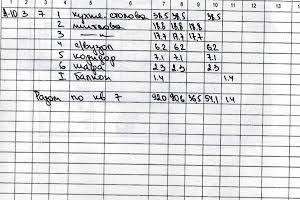 1 2 3 4 5 6 7 8 9 10 11 12
3 7 1 кухня-столова 36.5 36.5 36.5
2 житлова 18.8 18.8 18.8
3 —"— 17.7 17.7 17.7
4 с/вузол 6.2 6.2 6.2
5 коридор 7.1 7.1 7.1
6 шафа 2.3 2.3 2.3
I балкон 1.4 1.4
Разом по кв 7 92.0 90.6 36.5 54.1 1.4